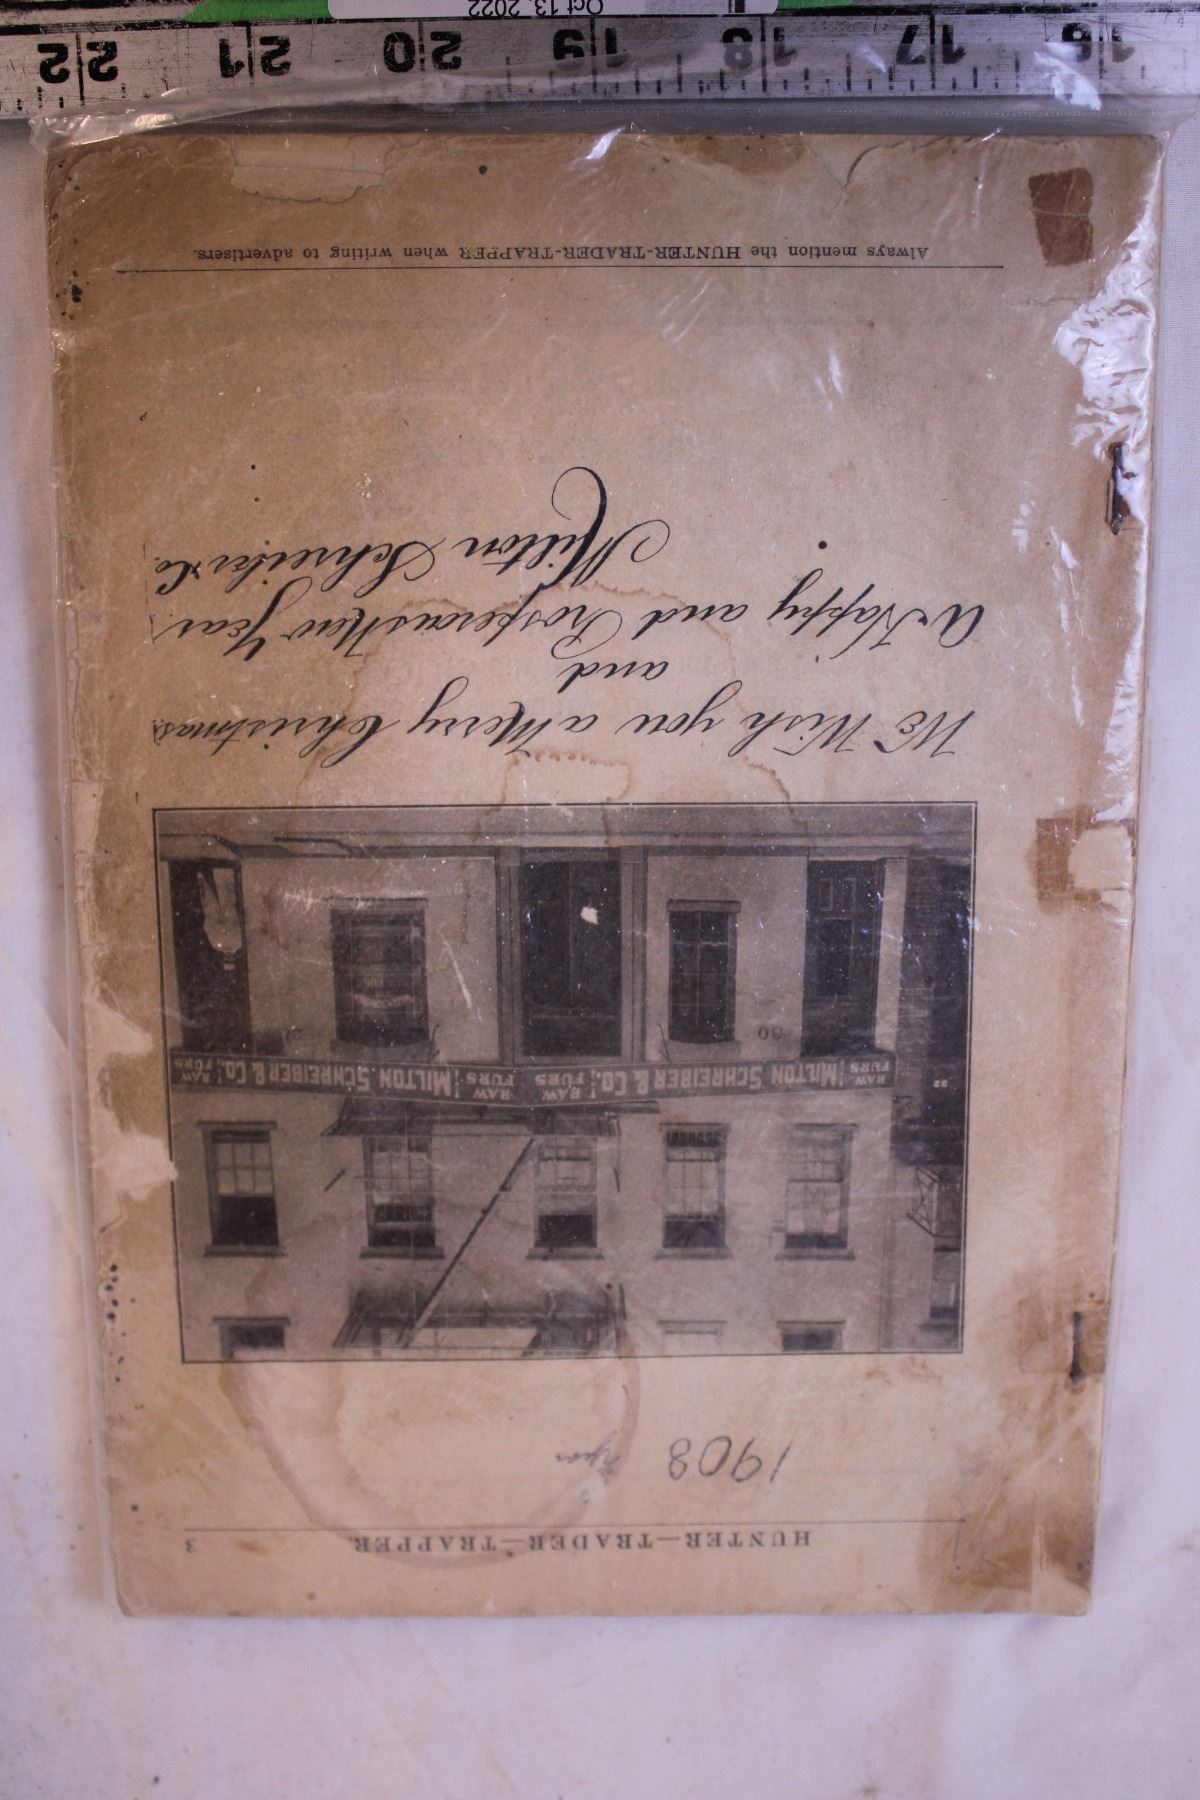 HUNTER—TRADER—TRAPPER. 3
1908 year
RAW FURS MILTON SCHREIBER & CO. RAW FURS RAW FURS MILTON SCHREIBER & CO. RAW FURS
30
We Wish you a Merry Christmas,
and
A Happy and Prosperous New Year.
Milton Schreiber & Co.
Always mention the HUNTER-TRADER-TRAPPER when writing to advertisers.
16 17 18 19 20 21 22
Oct 13, 2022